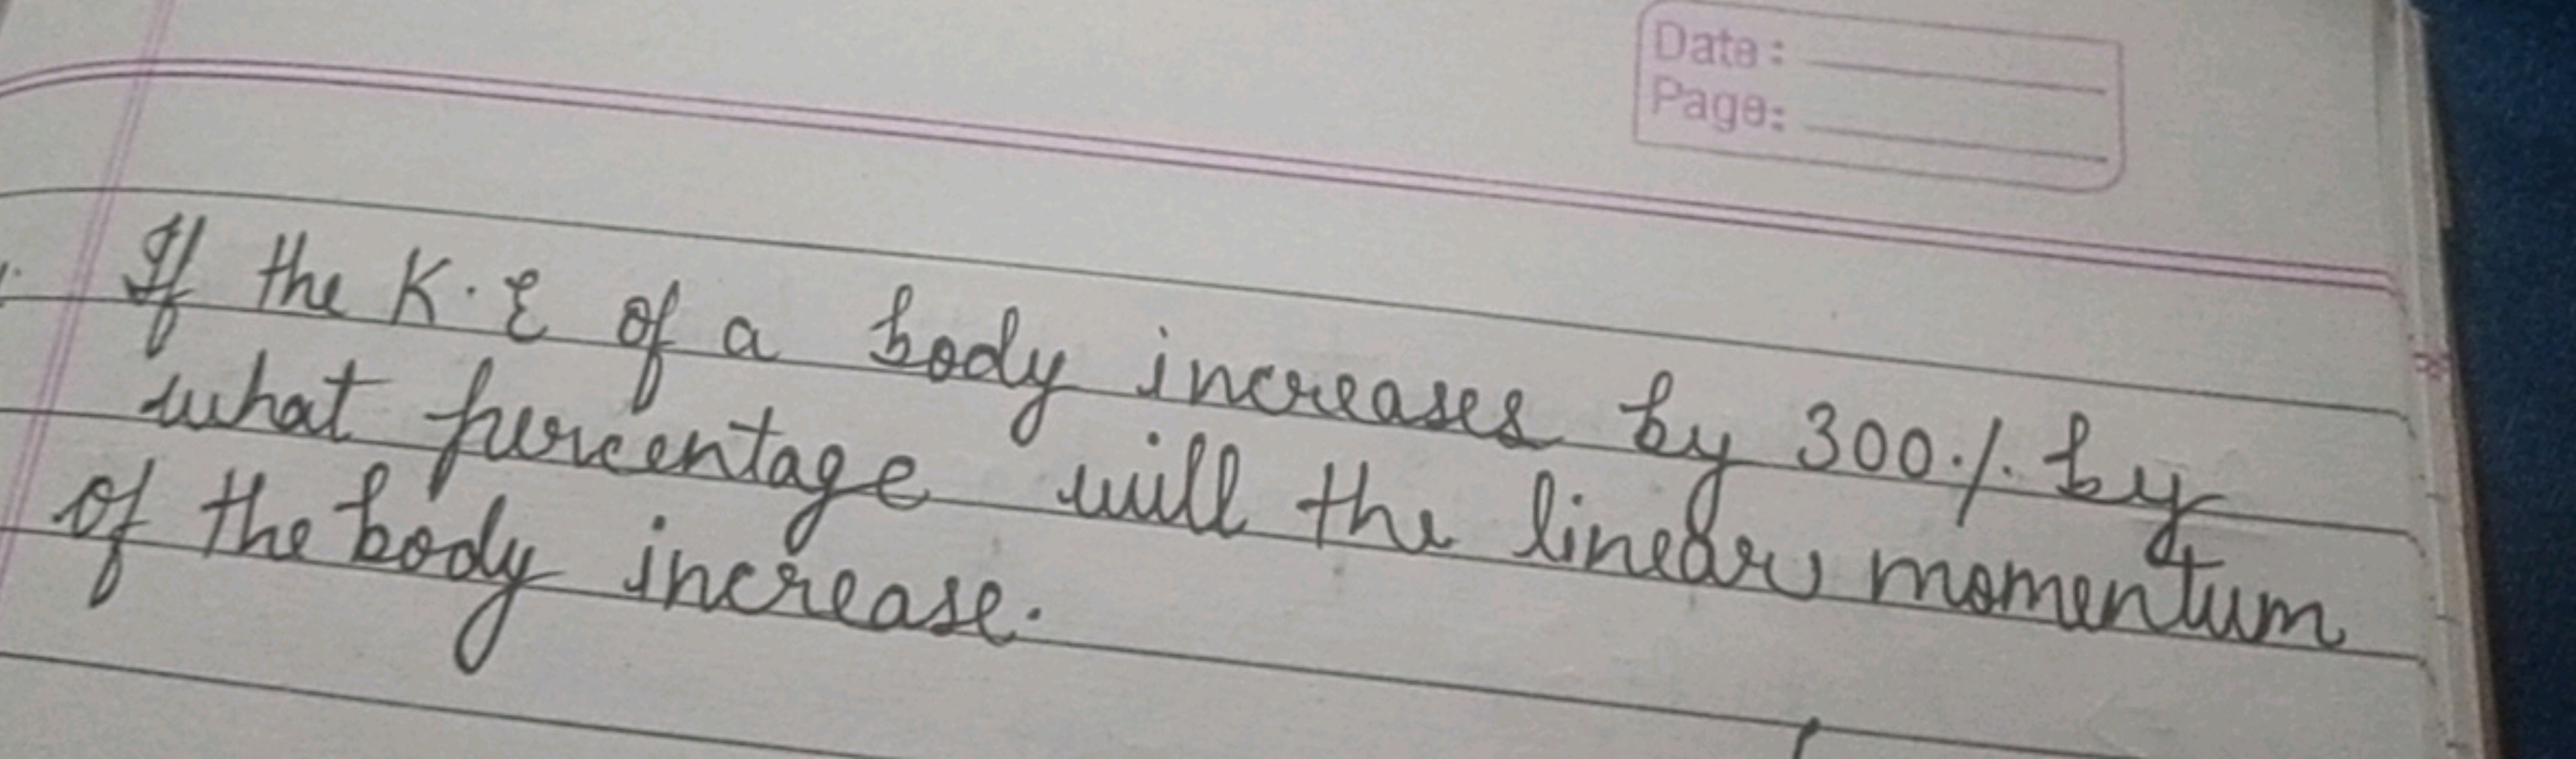 Date:
Page:
1. If the K.E of a body increases by 300% by
what percentage will the linear momentum
of the body increase.